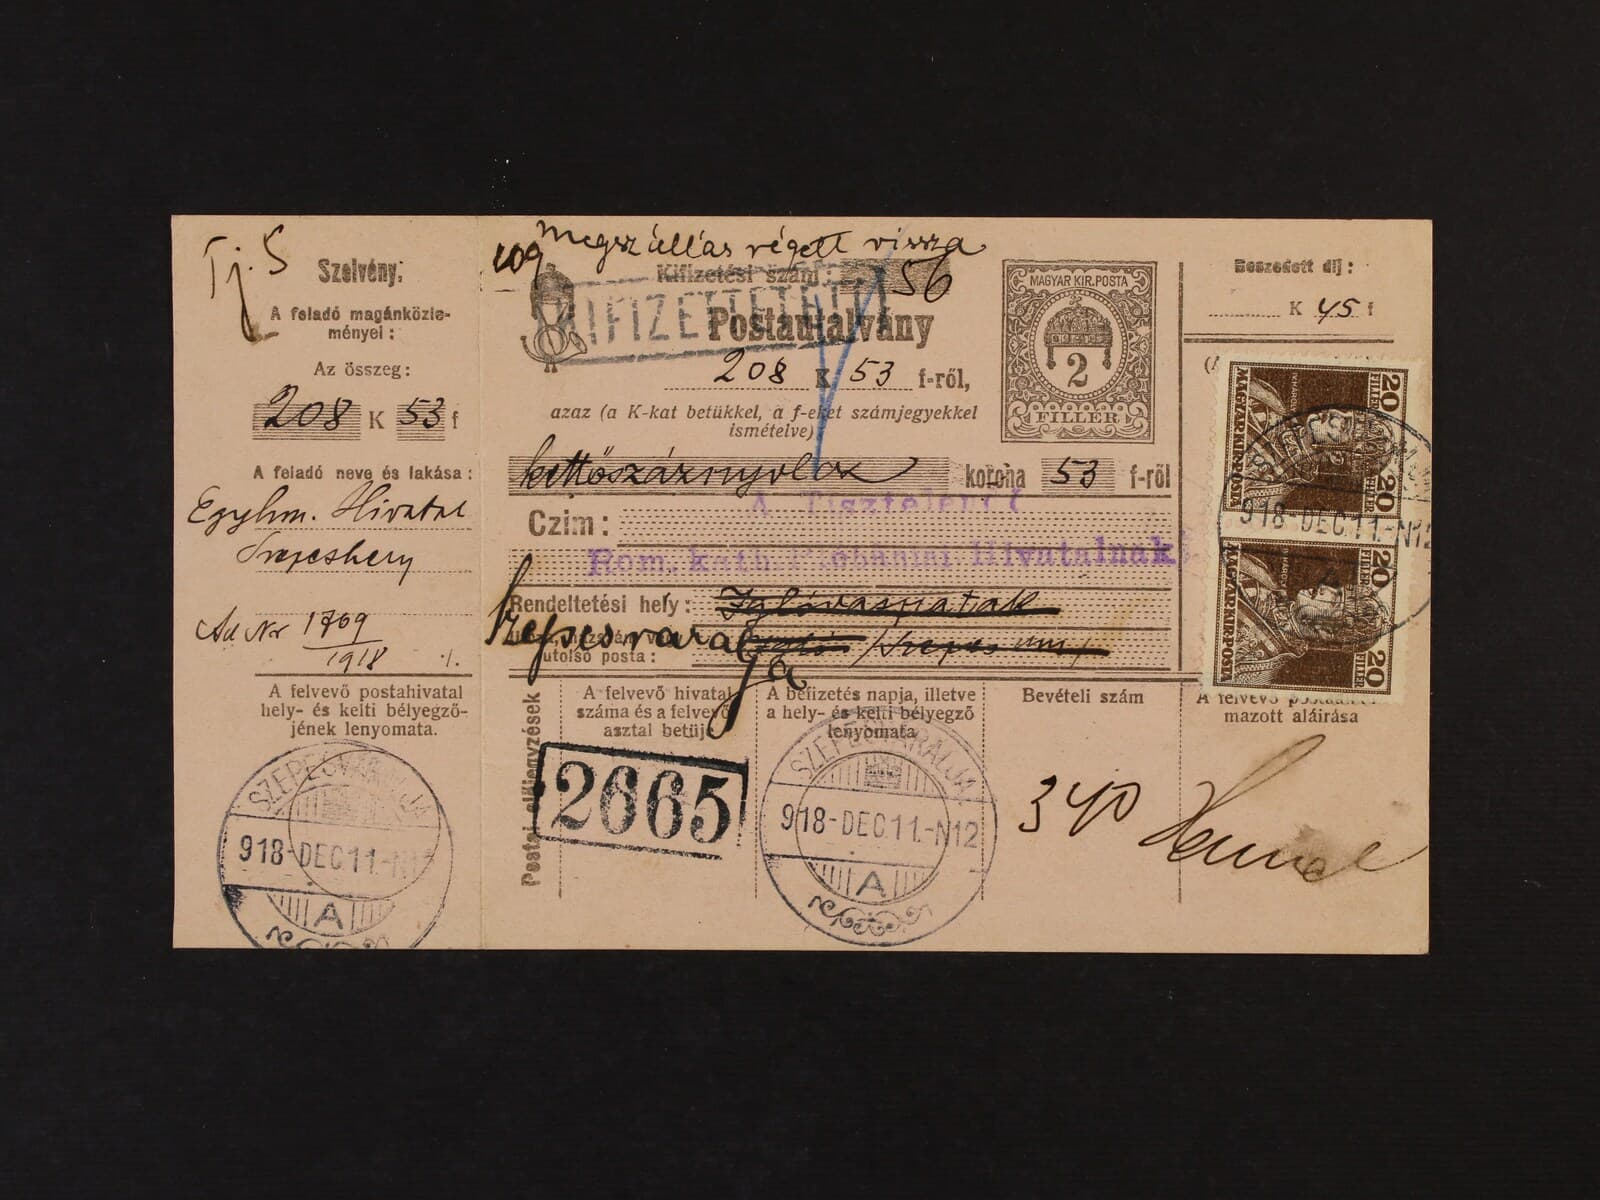 Tj. 5
Szelvény.
A feladó magánközle-
ményei:
Az összeg:
208 K 53 f
A feladó neve és lakása:
Egyhm. Hivatal
Szepeshely
Ad Nor 1709
1918 ./.
A felvevő postahivatal
hely- és kelti bélyegző-
jének lenyomata.
SZEPESVÁRALJA
918-DEC.11.-N12
A
109 Megszállás végett vissza
Kifizetési szám: 56
KIFIZETTETETT
Postautalvány
208 K 53 f-ről,
azaz (a K-kat betükkel, a f-eket számjegyekkel
ismételve)
kettőszáznyolcz korona 53 f-ről
Czim:
A Tisztelendő
Rom. kath. Plébániai Hivatalnak
Rendeltetési hely: Iglóvaspatak
utolsó posta: Igló /Szepes vm./
Szepesváralja
MAGYAR KIR. POSTA
2
FILLÉR
Beszedett díj:
K 45 f
20
FILLÉR
MAGYAR KIR. POSTA
20
20
FILLÉR
MAGYAR KIR. POSTA
20
918-DEC.11.-N12
Postai följegyzések
A felvevő hivatal
száma és a felvevő
asztal betűje
2665
A befizetés napja, illetve
a hely- és kelti bélyegző
lenyomata
SZEPESVÁRALJA
918-DEC.11.-N12
A
Bevételi szám
340
A felvevő
mazott aláirása